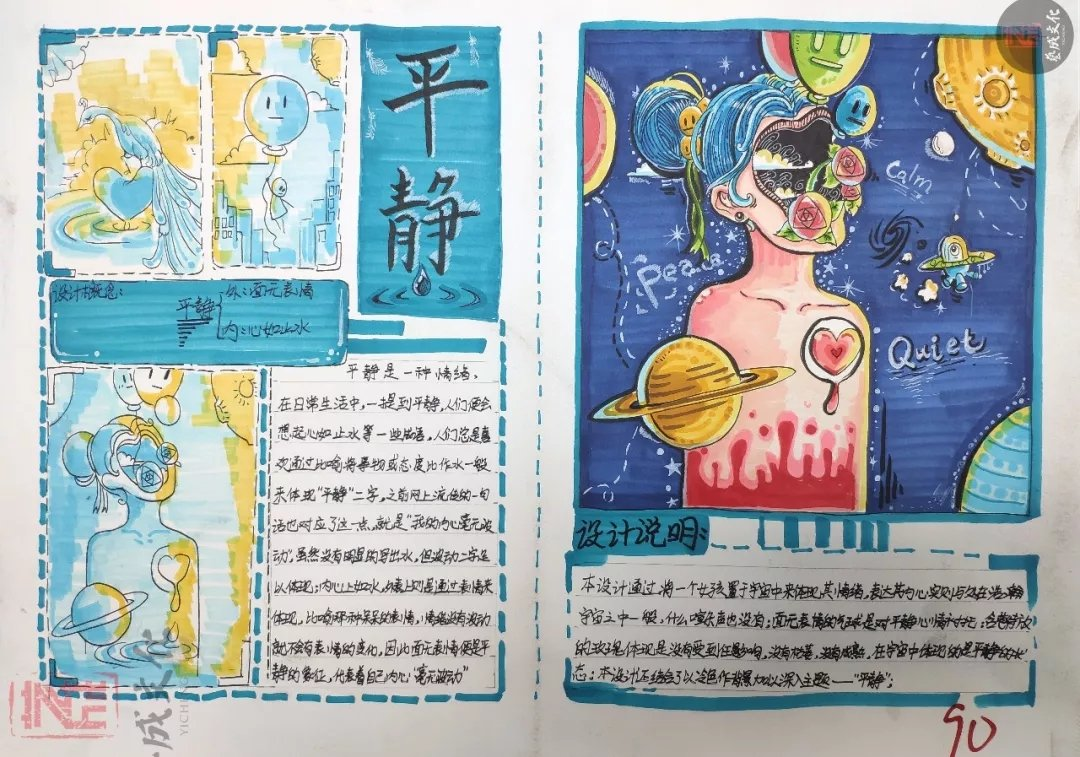 平静
设计构思：
平静
外：面无表情
内：心如止水
平静是一种情绪，
在日常生活中，一提到平静，人们便会
想起心如止水等一些成语，人们总是喜
欢通过比喻将事物或态度比作水一般
来体现“平静”二字，之前网上流传的一句
话也对应了这一点，就是“我的内心毫无波
动”，虽然没有明显的写出水，但波动二字足
以体现；内心上如水，外表上则是通过表情来
体现，比如那种呆呆的表情，情绪没有波动
就不会有表情的变化，因此面无表情便是平
静的象征，代表着自己内心“毫无波动”
Calm
Peace
Quiet
设计说明：
本设计通过将一个女孩置于宇宙中来体现其情绪，表达其内心实则与处在浩瀚
宇宙之中一般，什么喧杂声也没有；面无表情的气球是对平静心情的衬托；
的玫瑰体现是没有受到任何影响，没有枯萎，没有腐败，在宇宙中体现的是平静的状
态；本设计还结合了以冷色作背景加以深入主题——“平静”；
90
艺成文化
INE
YICHE